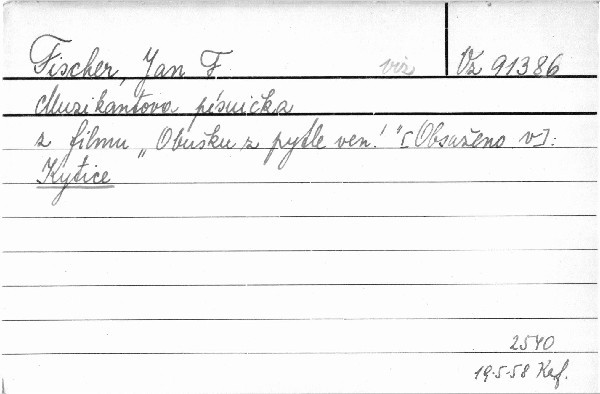 Fischer, Jan F. viz Vz 91386
Muzikantova písnička
z filmu „Obušku z pytle ven!" [Obsaženo v]:
Kytice
2540
19·5·58 Kef.